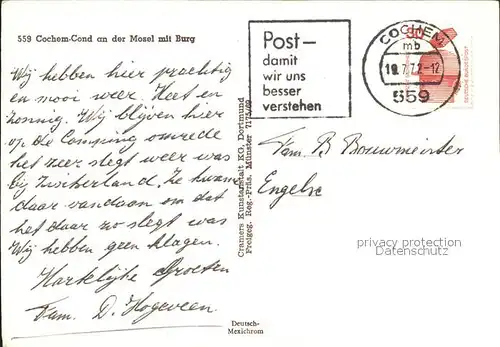 559 Cochem-Cond an der Mosel mit Burg
Wij hebben hier prachtig
en mooi weer. Heet en
zonnig. Wij blijven hier
op de Camping omrede
het zeer slegt weer was
bij Zwitserland. Ze kwamen
daar vandaan om dat
het daar zo slegt was
Wij hebben geen klagen.
Hartelijke Groeten
Fam. D. Hogeveen.
Cramers Kunstanstalt KG., Dortmund
Freigeg. Reg.-Präs. Münster 7175/69
Deutsch-
Mexichrom
Post –
damit
wir uns
besser
verstehen
COCHEM
mb
19.7.72-12
559
30
DEUTSCHE BUNDESPOST
Fam. B Bouwmeister
Engelse
privacy protection
Datenschutz